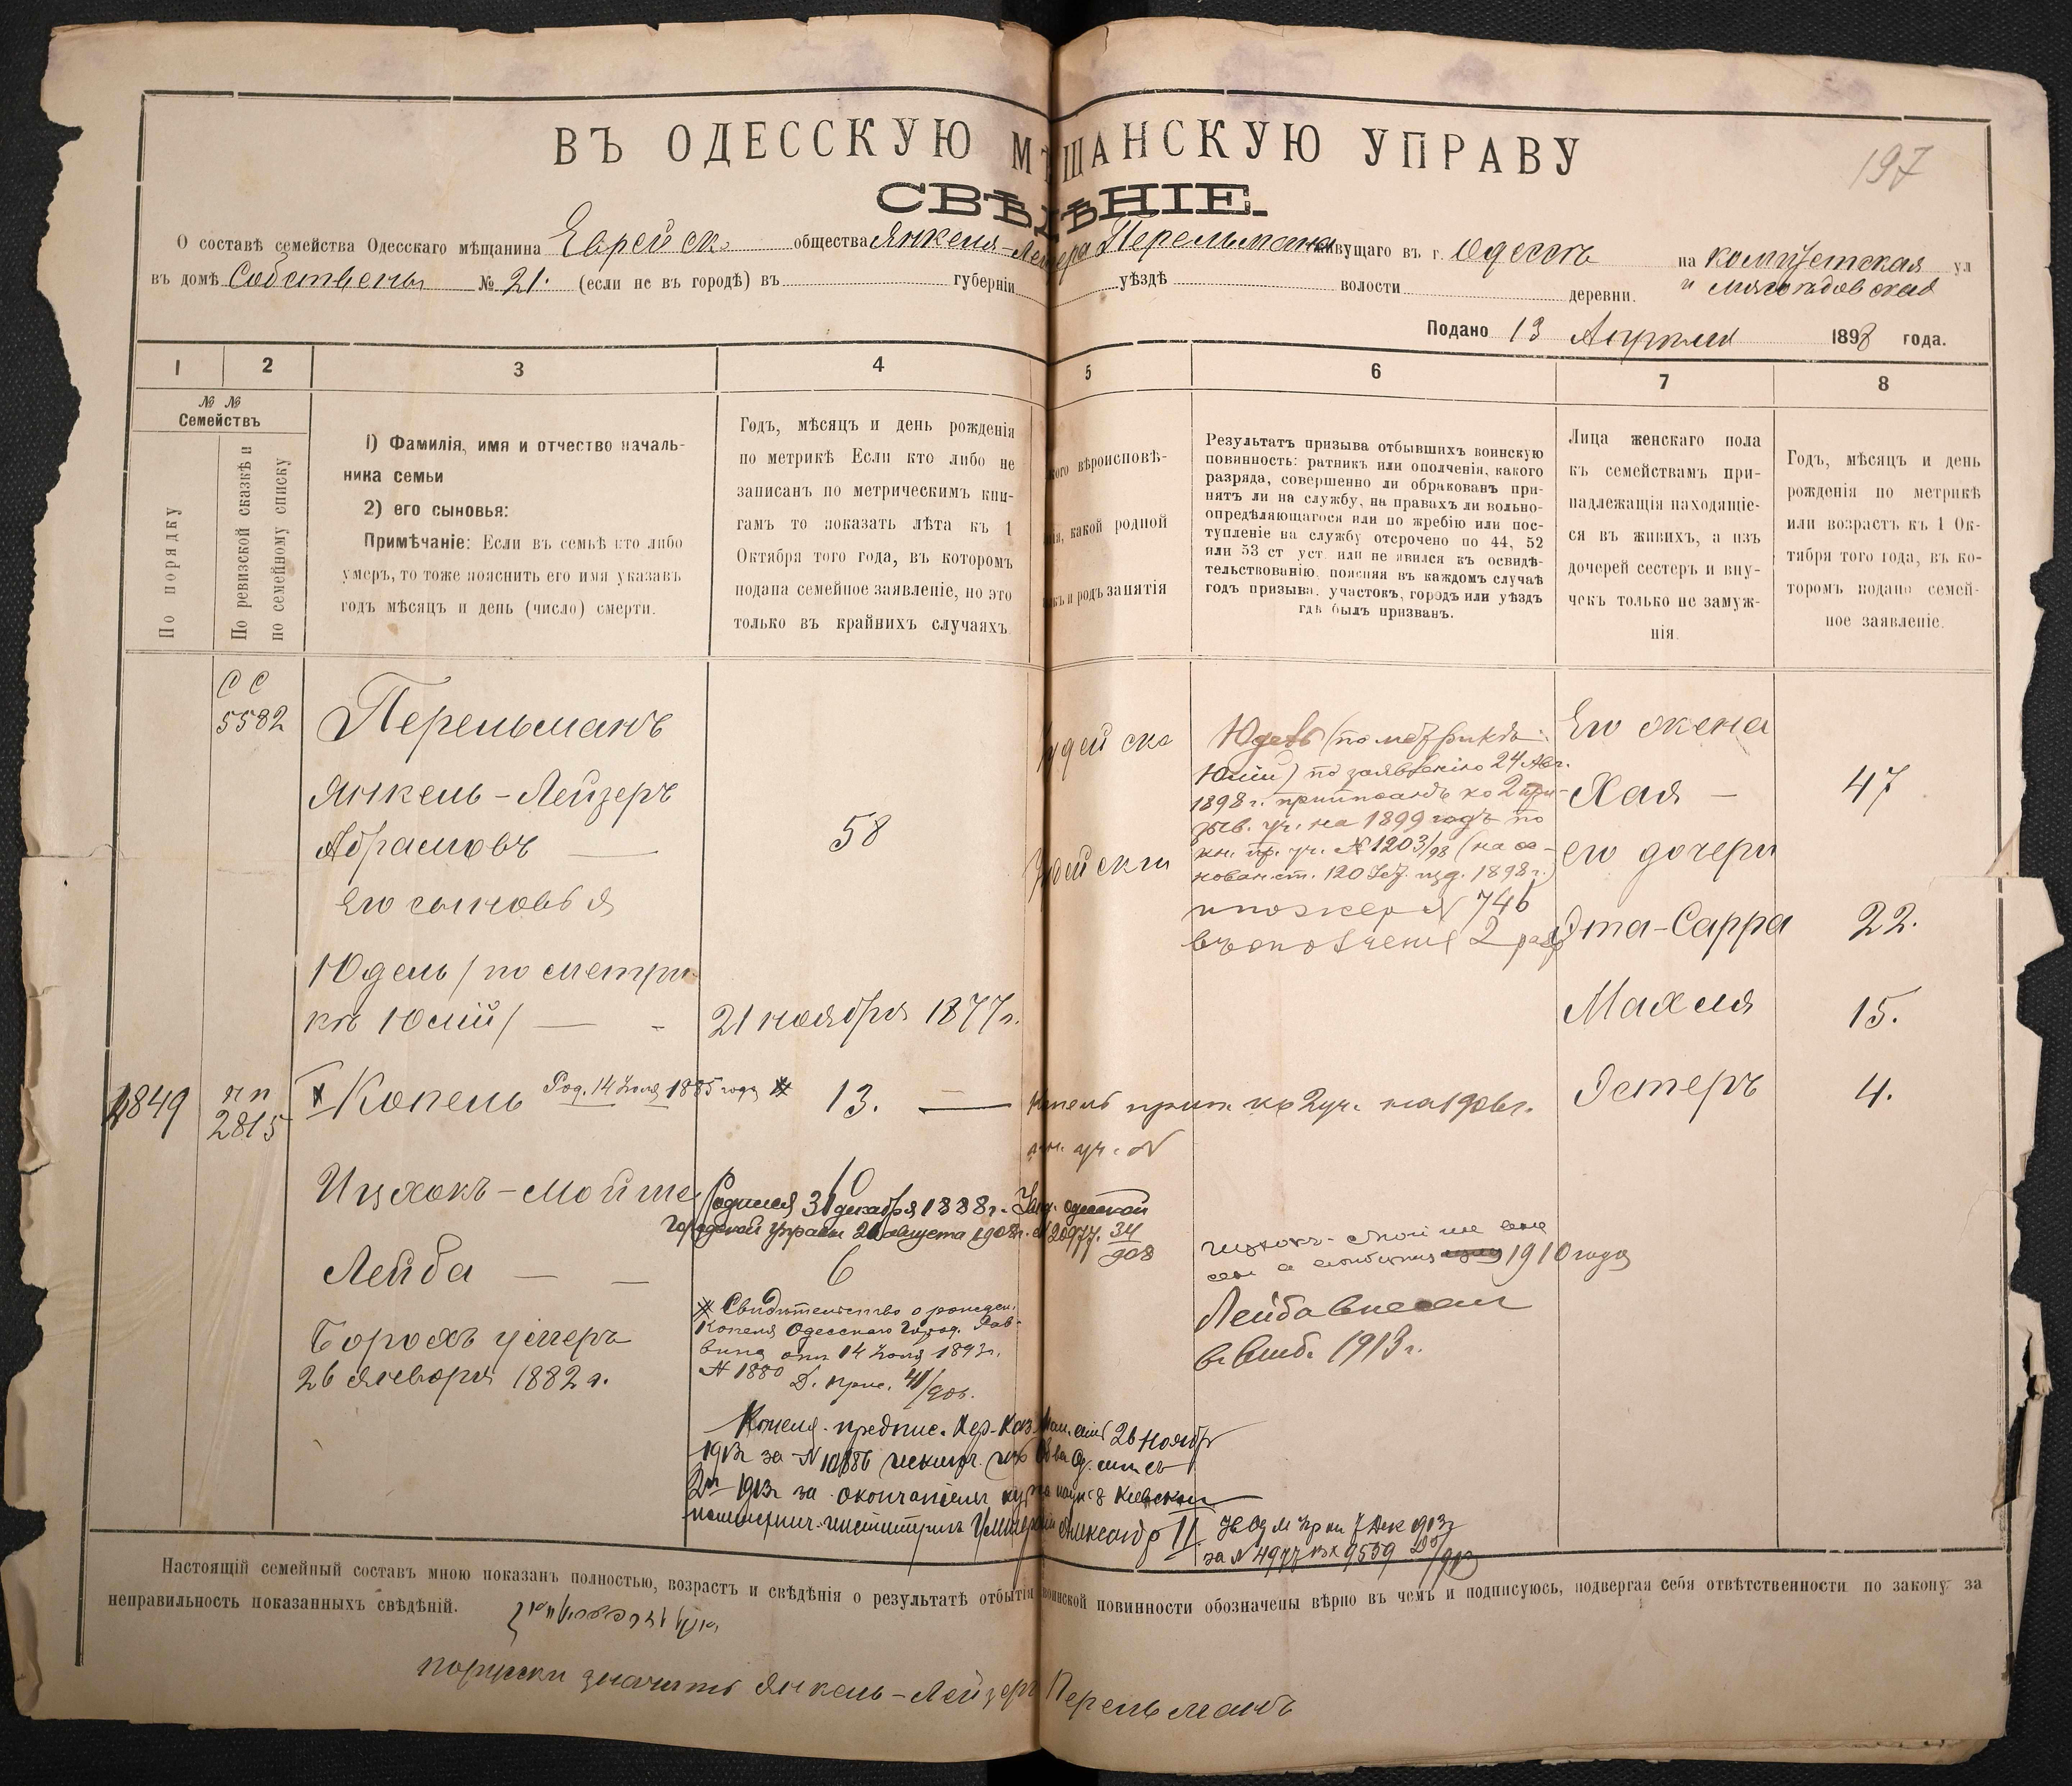 197
ВЪ ОДЕССКУЮ МѢЩАНСКУЮ УПРАВУ
СВѢДѢНІЕ.
О составѣ семейства Одесскаго мѣщанина Еврейск. общества Янкеля-Лейзера Перельмана живущаго въ г. Одессѣ на Комитетская ул
въ домѣ Собствены № 21. (если не въ городѣ) въ губерніи уѣздѣ волости деревни. и Мясоѣдовская
Подано 13 Апрѣля 1898 года.
1 2 3 4 5 6 7 8
№ №
Семействъ
По порядку
По ревизской сказкѣ и
по семейному списку
1) Фамилія, имя и отчество началь-
ника семьи
2) его сыновья:
Примѣчаніе: Если въ семьѣ кто либо
умеръ, то тоже пояснить его имя указавъ
годъ мѣсяцъ и день (число) смерти.
Годъ, мѣсяцъ и день рожденія
по метрикѣ Если кто либо не
записанъ по метрическимъ кни-
гамъ то показать лѣта къ 1
Октября того года, въ которомъ
подана семейное заявленіе, но это
только въ крайнихъ случаяхъ
вѣроисповѣ-
какой родной
и родъ занятія
Результатъ призыва отбывшихъ воинскую
повинность: ратникъ или ополченія, какого
разряда, совершенно ли обракованъ при-
нятъ ли на службу, на правахъ ли вольно-
опредѣляющагося или по жребію или пос-
тупленіе на службу отсрочено по 44, 52
или 53 ст уст. или не явился къ освидѣ-
тельствованію, поясняя въ каждомъ случаѣ
годъ призыва, участокъ, городъ или уѣздъ
гдѣ былъ призванъ.
Лица женскаго пола
къ семействамъ при-
надлежащія находящіе-
ся въ живихъ, а изъ
дочерей сестеръ и вну-
чекъ только не замуж-
нія.
Годъ, мѣсяцъ и день
рожденія по метрикѣ
или возрастъ къ 1 Ок-
тября того года, въ ко-
торомъ подано семей-
ное заявленіе.
СС
5582
Перельманъ
Янкель-Лейзеръ
Абрамовъ —
58
Его сыновья
Юдель (по метри-
кѣ Юлій) — -
21 ноября 1877 г.
4849
пп
2815
Копель Род. 14 Іюля 1885 года
13. —
Ицхокъ-Мойше
10
Родился 31 декабря 1888 г. Увед. одесской
Городской Управы 26 августа 1908 г. № 20977. 34/908
Лейба — —
6
Борохъ умеръ
26 января 1882 г.
Свидѣтельство о рожден.
Копеля Одесскаго Город. Рав-
вина отъ 14 Іюля 1893 г.
№ 1880 Д. прис. 41/906.
Копеля предпис. Хер. Каз. Пал. отъ 26 ноября
1913 за № 10886 исключ. изъ Об-ва Од. мѣщ съ
2 п 1913 за окончаніемъ курса наукъ въ Кіевском
политехнич. институтѣ Императора Александра II.
Ув Од М Упр отъ 7 Дек 1913
за № 4977 вх 9559
Іудейска
Іудейски
Юдель (по метрикѣ
Юлій) по заявленію 24 Авг.
1898 г. приписанъ ко 2 при-
зыв. уч. на 1899 годъ по
кн. пр. уч. № 1203/98 (на ос-
нован. ст. 120 Уст. изд. 1898 г.)
746
въ ополченіе 2 разр
Копель прип. ко 2 уч. на 1906 г.
кн. уч. №
Ицхокъ-Мойше
1910 года
Лейба внесен
в. 1913 г.
Его жена
Хая — 47
Его дочери
Эта-Сарра 22.
Махля 15.
Эстеръ 4.
Настоящій семейный составъ мною показанъ полностью, возрастъ и свѣдѣнія о результатѣ отбытія воинской повинности обозначены вѣрно въ чемъ и подписуюсь, подвергая себя отвѣтственности по закону за
неправильность показанныхъ свѣдѣній.
поруски значитъ Янкель-Лейзеръ Перельманъ